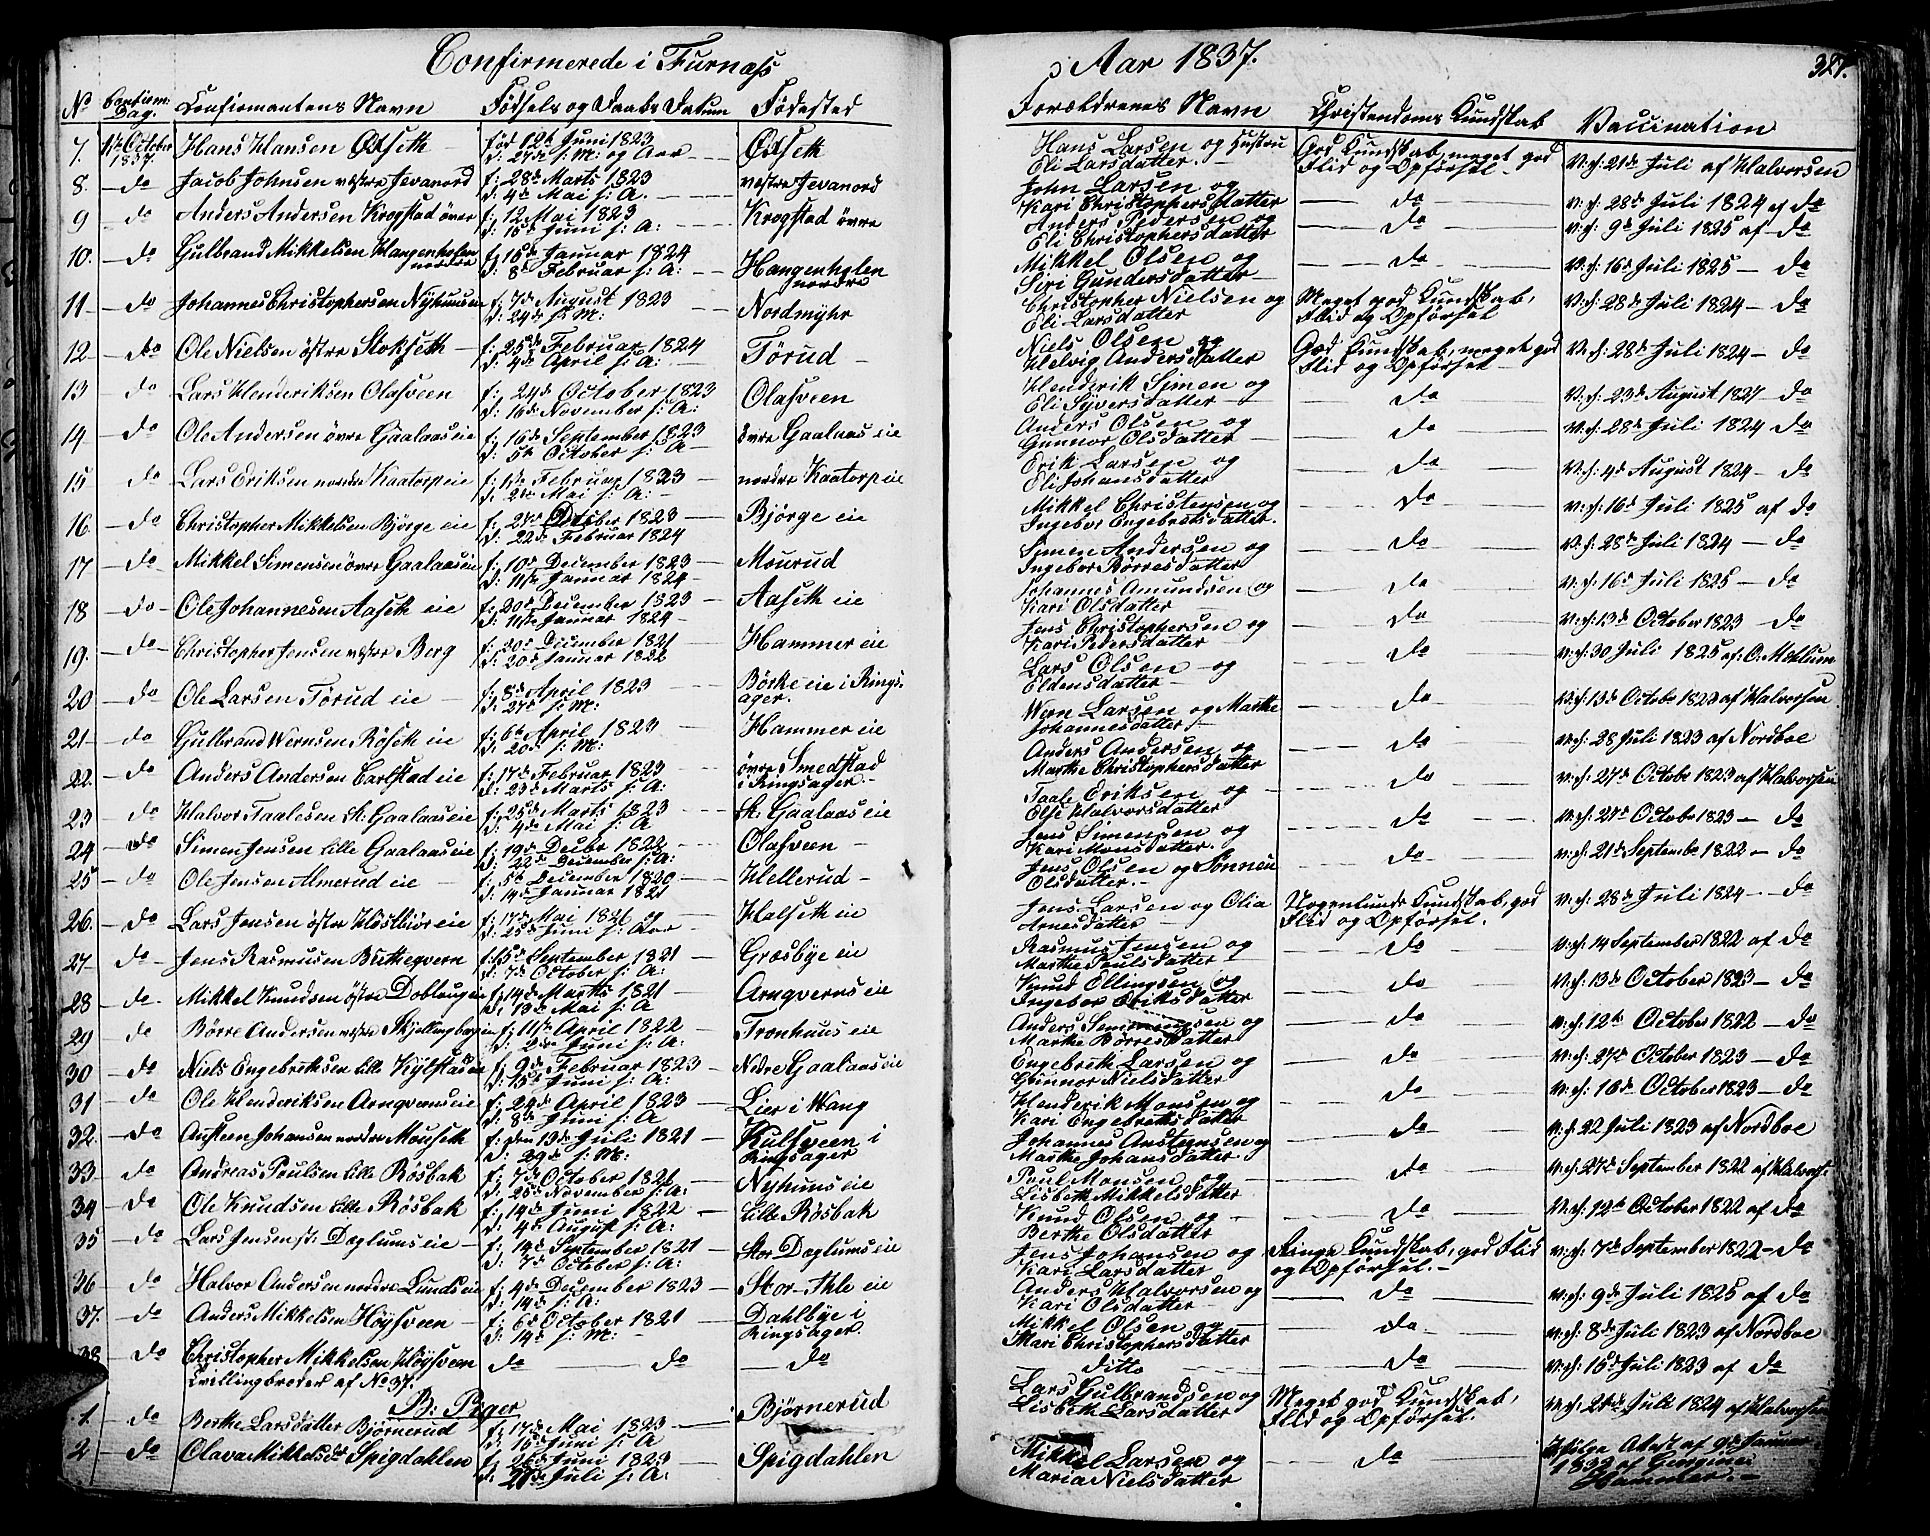 Confirmerede i Furnæs
Aar 1837.
387.
No Confirm: Dag. Confirmantens Navn Fødsels og Daabs Datum Fødested Forældrenes Navn Christendoms Kundskab Vaccination
7. October 1837. Hans Hansen Ødseth Hans Larsen og Hustru Eli Larsdatter. God Kundskab, meget god Flid og Opførsel. v: d: 21de Juli af Halvorsen
fød 12te Juni 1823 d: 27de s: M: og Aar Ødseth
8. do Jacob Johnsen vestre Jevanord f: 28de Marts 1823 d: 4de Mai s: A. vestre Jevanord John Larsen og Kari Christophersdatter do v: d: 28de Juli 1824 af do
9 do Anders Andersen Krogstad övre f: 12 Mai 1823 d: 15de Juni s: A: Krogstad övre Anders Pedersen og Eli Christophersdatter do v: d: 9de Juli 1825 af do
10. do Gulbrand Mikkelsen Hangenholen nordre f: 15de Januar 1824 d: 8de Februar s: A: Hangenholen nordre Mikkel Olsen og Siri Gundersdatter do v: d: 16de Juli 1825 do
11 do Johannes Christophersen Nyhuus f: 7de August 1823 d: 24de s: M: Nordmyhr Christopher Nielsen og Eli Larsdatter Meget god Kundskab, Flid og Opførsel v: d: 28de Juli 1824 do
12 do Ole Nielsen östre Stokseth f: 25de Februar 1824 d: 4de April s: A: Törud Niels Olsen og Helvig Andersdatter God Kundskab, meget god Flid og Opførsel v: d: 28de Juli 1824 do
13 do Lars Henderiksen Olasveen f: 24de October 1823 d: 16de November s: A: Olasveen Henderik Simen og Eli Syversdatter do v: d: 23de August 1827 do
14 do Ole Andersen övre Gaalaas eie f: 16de September 1823 d: 5te October s: A övre Gaalaas eie Anders Olsen og Gunnor Olsdatter do v: d: 28de Juli 1824 do
15 do Lars Eriksen nordre Kaatorp eie f: 1de Februar 1823 d: 2den Mai s: A: nordre Kaatorp eie Erik Larsen og Eli Johansdatter do v: d: 4de August 1824 do
16. do Christopher Mikkelsen Björge eie f: 27de 1823 d: 22de Februar 1824 Björge eie Mikkel Christensen og Ingebor Engebretsdatter. do v: d: 16de Juli 1825 af do
17 do Mikkel Simensen övre Gaalaas eie f: 10de December 1823 d: 11te Januar 1824 Mourud Simen Andersen og Ingebor Börresdatter do v: d: 28de Juli 1824 do
18 do Ole Johannesen Aaseth eie f: 20de December 1823 d: 11te Januar 1824 Aaseth eie Johannes Amundsen og Kari Olsdatter do v: d: 16de Juli 1825 do
19. do Christopher Jensen vestre Berg f: 20de December 1821 d: 20de Januar 1822 Hammer eie Jens Christophersen og Kari Pedersdatter do v: d: 13de October 1823 do
20 do Ole Larsen Törud eie f: 8de April 1823 d: 27de s: M: Böske eie i Ringsager. Lars Olsen og Eldensdatter do v: d: 30 Juli 1825 af O: Mohlum
21 do Gulbrand Wernsen Röseth eie f: 6te April 1823 d: 20de s: M: Hammer eie Wern Larsen og Marthe Johannesdatter do v: d: 13de October 1823 af Halvorsen
22. do Anders Andersen Carlstad eie f: 17de Februar 1823 d: 23de Marts s: A: övre Smedstad i Ringsager. Anders Andersen og Marthe Christophersdatter do v: d: 28 Juli 1823 af Nordboe
23 do Halvor Taalesen St: Gaalaas eie f: 25de Marts 1823 d: 4de Mai s: A St: Gaalaas eie Taale Eriksen og Else Halvorsdatter do v: d: 27de October 1823 af Halvorsen
24 do Simen Jensen Lille Gaalaas eie f: 19de Decbr 1822 d: 22de December s: A: Olasveen Jens Simensen og Kari Monsdatter. do v: d: 27de October 1823 do
25 do Ole Jensen Almerud eie f: 5te December 1820 d: 14de Januar 1821 Hellerud Jens Olsen og Sönnou Olsdatter. do v: d: 21de September 1822 do
26. do Lars Jensen östre Höstbiör eie f: 17de Mai 1821 og d: 25de Juni s: Aar Halseth eie Jens Larsen og Olia Arnesdatter Nogenlunde Kundskab, god Flid og Opførsel. v: d: 28de Juli 1824 do
27 do Jens Rasmusen Bekkeqvern f: 15de September 1821 d: 7de October s: A: Græsbye eie Rasmus Jensen og Marthe Poulsdatter do v: d: 14 September 1822 af do
28 do Mikkel Knudsen östre Doblaug eie f: 14de Martts 1821 d: 13de Mai s: A Arnqverns eie Knud Ellingsen og Ingebor Eriksdatter do v: d: 13de October 1823 do
29 do Börre Andersen vestre Skjellingbergeie f: 11te April 1822 d: 2den Juni s: A: Tronhuus eie Anders og Marthe Börresdatter do v: d: 12te October 1822 do
30 do Niels Engebretsen Lille Kylstad eie f: 9de Februar 1823 d: 15de Juni s: A: Nedre Gaalaas eie Engebreth Larsen og Gunnor Nielsdatter do v: d: 27de October 1823 do
31 do Ole Henderiksen Arnqverns eie f: 24de April 1823 d: 8de Juni s: A Lier i Wang Henderik Monsen og Kari Engebretsdatter do v: d: 16de October 1823 do
32. do Austeen Johansen nordre Mouseth f: den 13de Juli 1821 d: 29de s: M: Kulsveen i Ringsager Johannes Austensen og Marthe Johansdatter do v: d: 22 Juli 1823 af Nordboe
33 do Andreas Poulsen Lille Rösbak f: 7de October 1821 d: 25de November s: A: Nyhuus eie Poul Monsen og Lisbeth Mikkelsdatter do v: d: 27de September 1822 af Halvors:
34 do Ole Knudsen Lille Rösbak f: 14de Juni 1822 d: 4de August s: A: Lille Rösbak Knud Olsen og Berthe Olsdatter do v: d: 12te October 1822 af do
35 do Lars Jensen St: Doglums eie f: 14de September 1821 d: 7de October s: A: Stor Doglums eie Jens Johansen og Kari Larsdatter Ringe Kundskab, god Flid og Opførsel. v: d: 7de September 1822 do
36 do Halvor Andersen nordre Lunds eie f: 4de December 1823 d: 14de s: A: Stor-Ahle eie Anders Halvorsen og Kari Olsdatter do v: d: 9de Juli 1825 af do
37. do Anders Mikkelsen Höysveen f: 6te October 1821 d: 14de s: M: Dahlbye i Ringsager. Mikkel Olsen og Mari Christophersdatter do v: d: 8de Juli 1823 af Nordboe
38 do Christopher Mikkelsen Höysveen Tvillingbroder af No 37. do do do ditto do v: d: 15de Juli 1823 af do
B: Piger
1. do Berthe Larsdatter Björnerud f: 17de Mai 1823 d: 15de Juni s: A Björnerud Lars Gulbrandsen og Lisbeth Larsdatter Meget god Kundskab, Flid og Opførsel. v: d: 21de Juli 1824 af Halvorsen
2 do Olava Mikkelsdr Spigdahlen f: 26de Juni 1823 d: 21de Juli s: A: Spigdahlen Mikkel Larsen og Maria Nielsdatter do Ifölge Attest af 9de Januar af Hammer